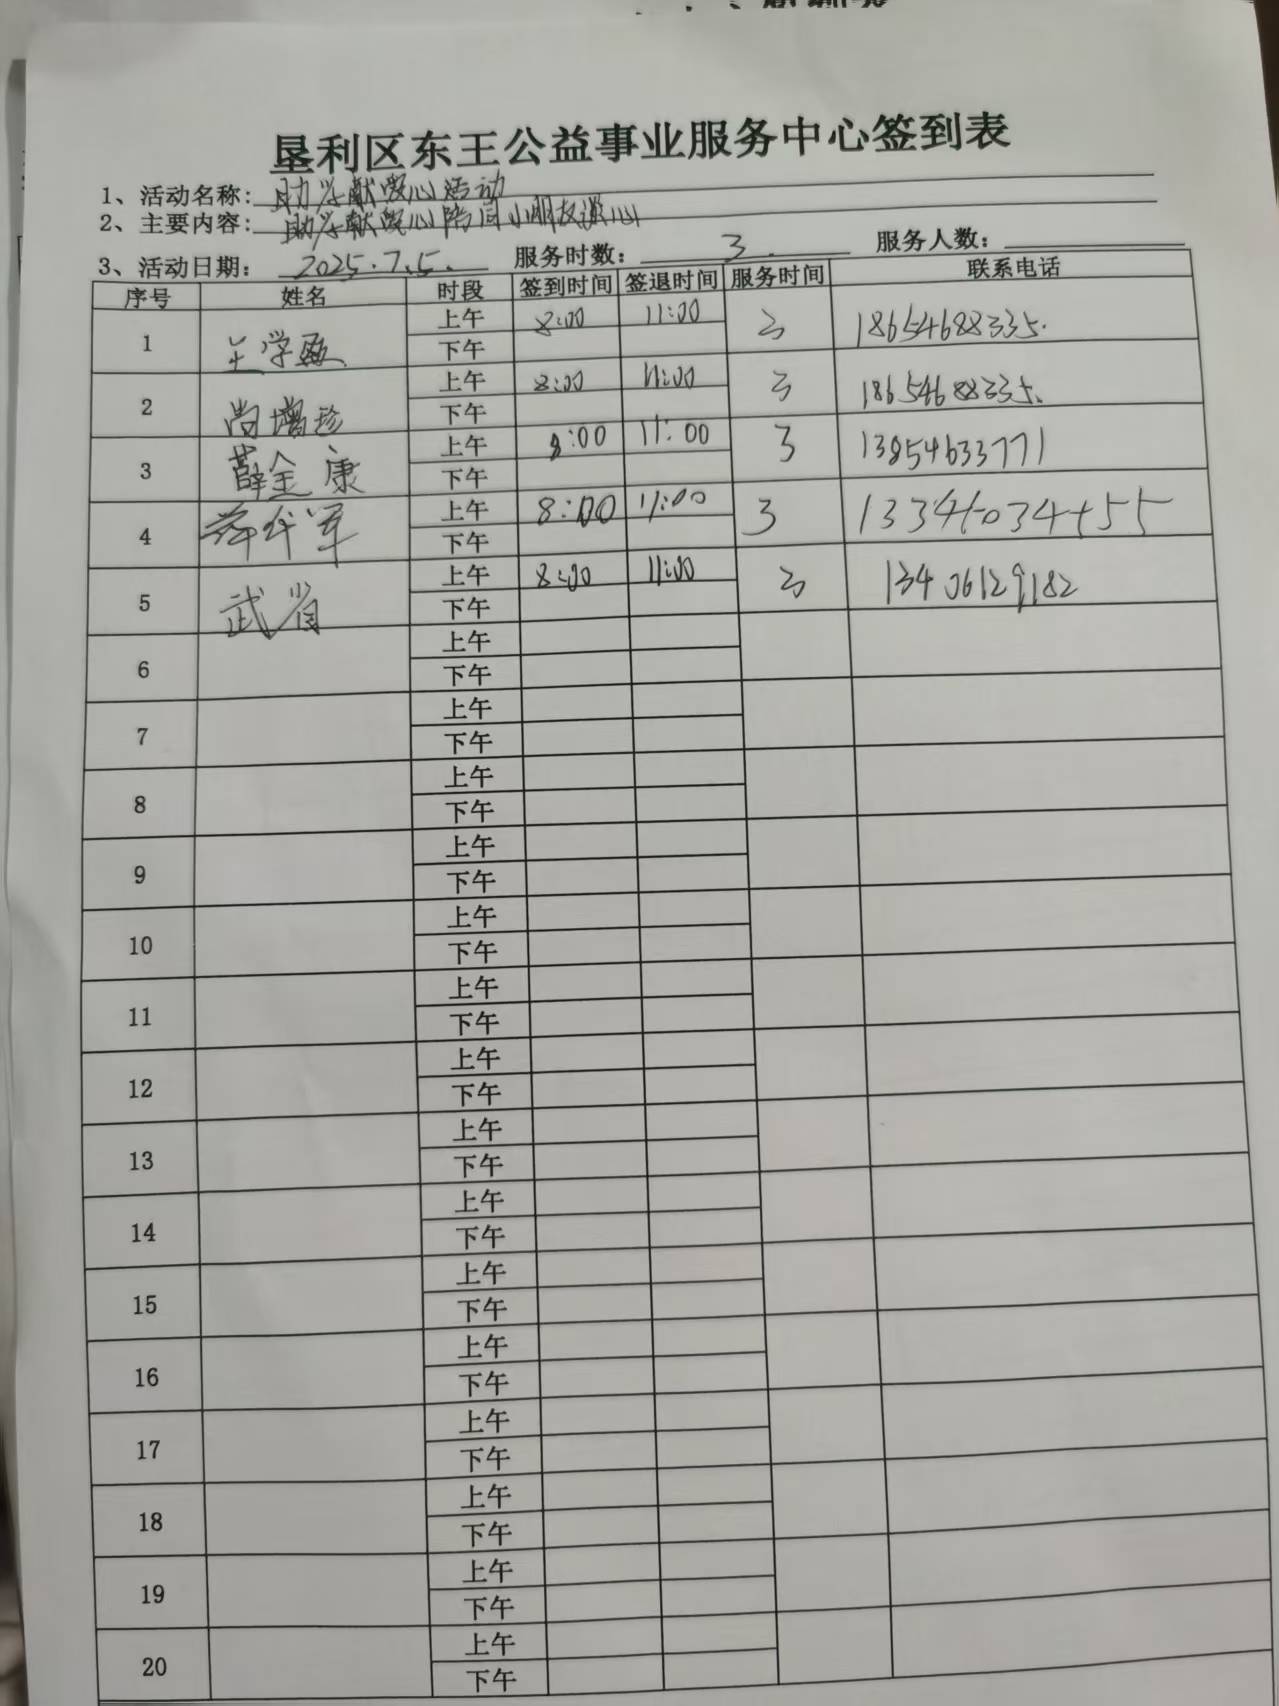 垦利区东王公益事业服务中心签到表
1、活动名称: 助学献爱心活动
2、主要内容: 助学献爱心陪同小朋友谈心
3、活动日期: 2025.7.5. 服务时数: 3. 服务人数:
序号 姓名 时段 签到时间 签退时间 服务时间 联系电话
1 王学 上午 8:00 11:00 3 18654688335.
下午
2 尚增珍 上午 8:00 11:00 3 18654688335.
下午
3 薛金康 上午 8:00 11:00 3 13854633771
下午
4 上午 8:00 11:00 3
下午
5 武 上午 8:00 11:00 3 13406129182
下午
6 上午
下午
7 上午
下午
8 上午
下午
9 上午
下午
10 上午
下午
11 上午
下午
12 上午
下午
13 上午
下午
14 上午
下午
15 上午
下午
16 上午
下午
17 上午
下午
18 上午
下午
19 上午
下午
20 上午
下午